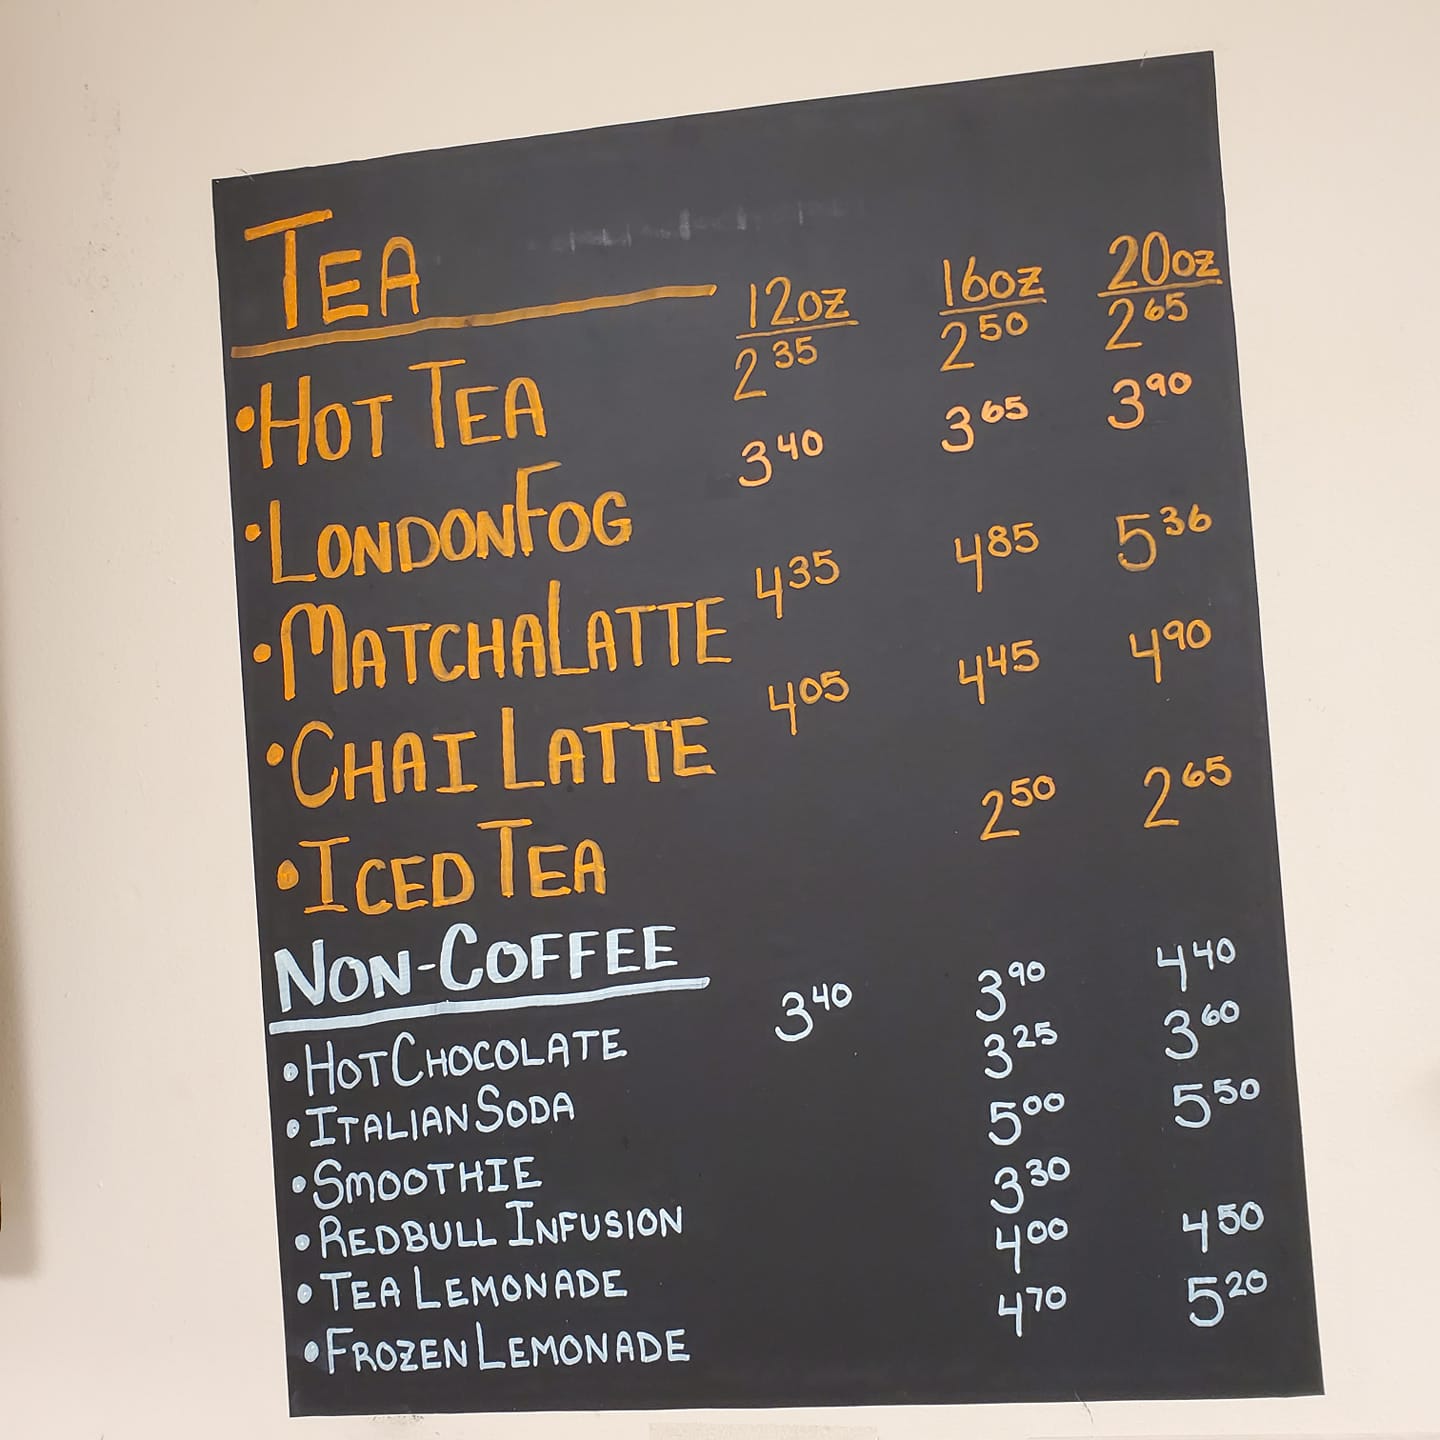 TEA 12oz 16oz 20oz
•HOT TEA 2.35 2.50 2.65
•LONDON FOG 3.40 3.65 3.90
•MATCHA LATTE 4.35 4.85 5.36
•CHAI LATTE 4.05 4.45 4.90
•ICED TEA 2.50 2.65
NON-COFFEE
•HOT CHOCOLATE 3.40 3.90 4.40
•ITALIAN SODA 3.25 3.60
•SMOOTHIE 5.00 5.50
•REDBULL INFUSION 3.30
•TEA LEMONADE 4.00 4.50
•FROZEN LEMONADE 4.70 5.20